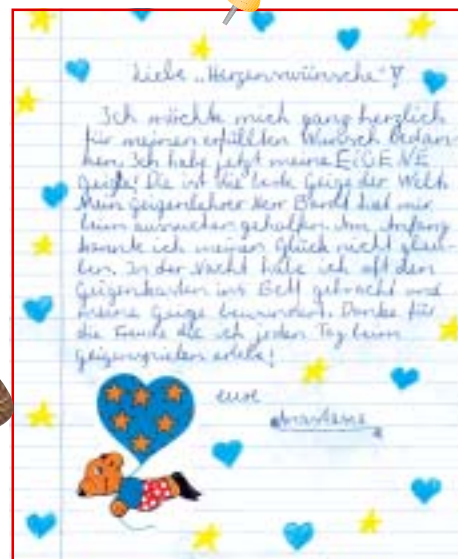 Liebe „Herzenswünsche“!
Ich möchte mich ganz herzlich
für meinen erfüllten Wunsch bedan-
ken. Ich habe jetzt meine EIGENE
Geige! Die ist die beste Geige der Welt.
Mein Geigenlehrer Herr hat mir
beim aussuchen geholfen. Am Anfang
konnte ich meinen Glück nicht glau-
ben. In der Nacht habe ich oft den
Geigenkasten ins Bett gebracht und
meine Geige bewundert. Danke für
die Freude die ich jeden Tag beim
Geigenspielen erlebe!
eure